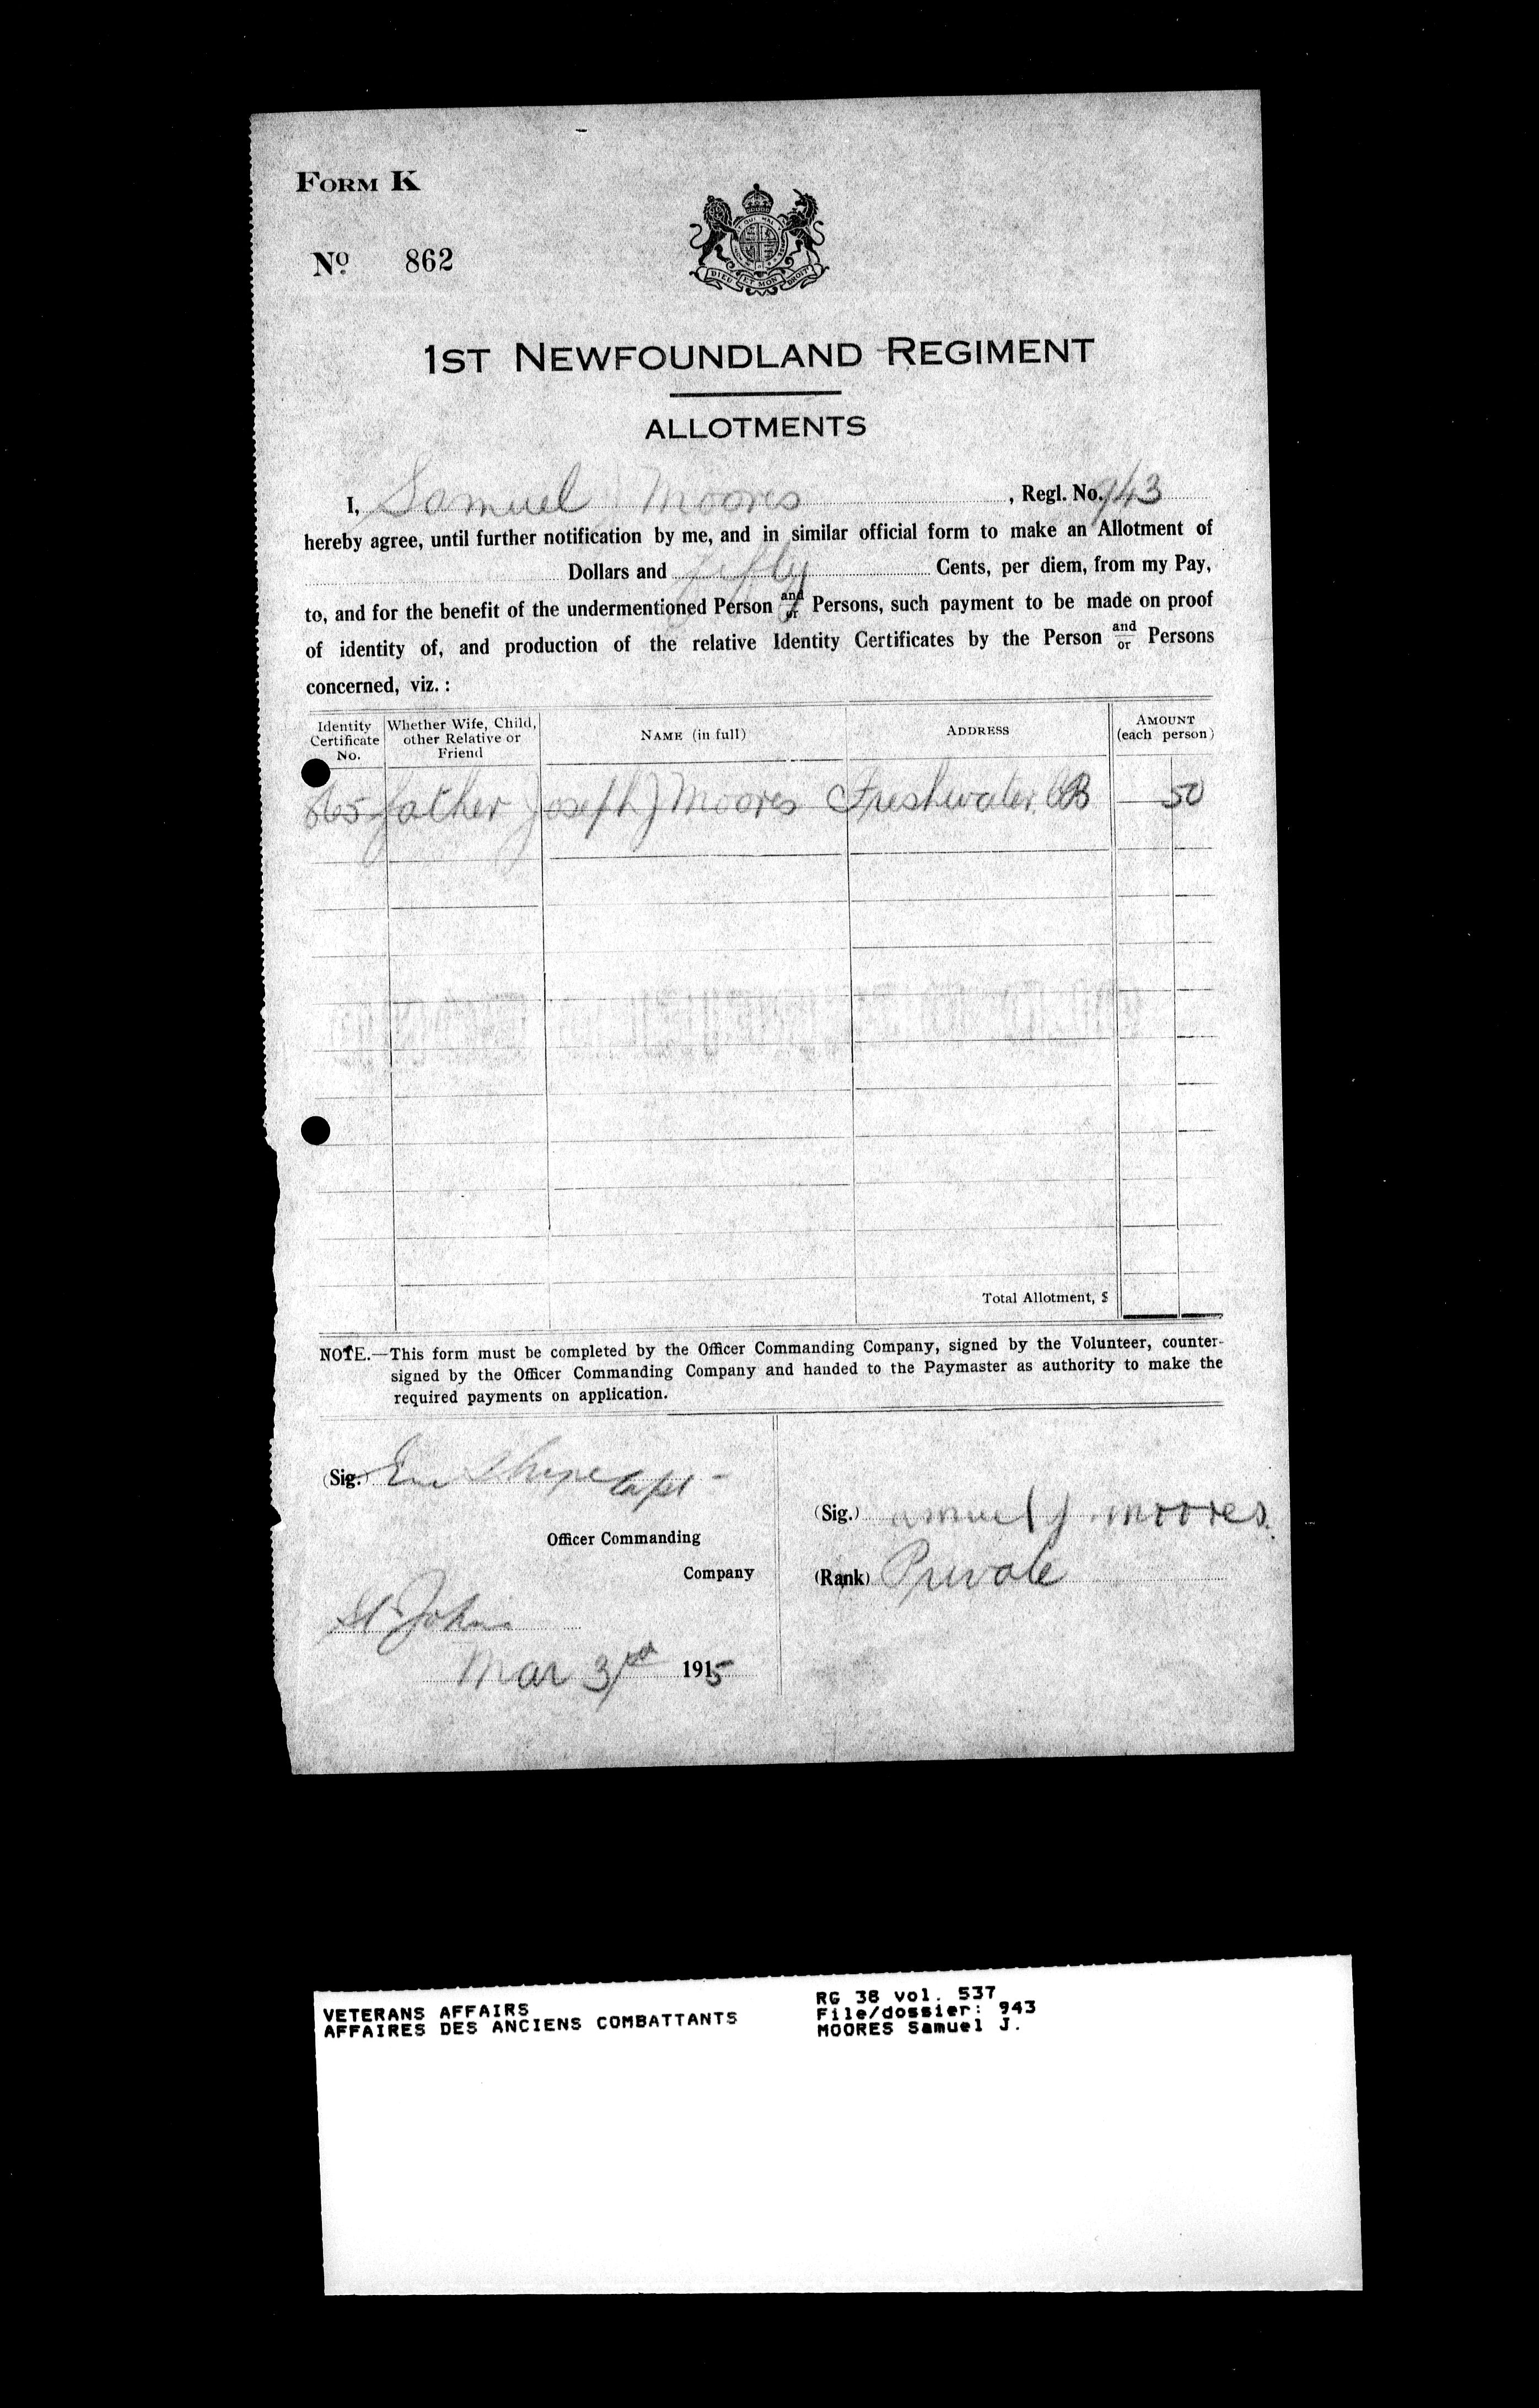 FORM K
Nº 862
QUI MAL
DIEU ET MON DROIT
1ST NEWFOUNDLAND REGIMENT
ALLOTMENTS
I, Samuel J Moores, Regl. No. 943
hereby agree, until further notification by me, and in similar official form to make an Allotment of
Dollars and fifty Cents, per diem, from my Pay,
to, and for the benefit of the undermentioned Person and/or Persons, such payment to be made on proof
of identity of, and production of the relative Identity Certificates by the Person and/or Persons
concerned, viz. :
Identity Certificate No. Whether Wife, Child, other Relative or Friend NAME (in full) ADDRESS AMOUNT (each person)
865 father Joseph J Moores Freshwater CB 50
Total Allotment, $
NOTE.—This form must be completed by the Officer Commanding Company, signed by the Volunteer, counter-
signed by the Officer Commanding Company and handed to the Paymaster as authority to make the
required payments on application.
(Sig.) Capt
Officer Commanding
Company
(Sig.) amuel J moores.
(Rank) Private
St Johns
Mar 31st 1915
VETERANS AFFAIRS
AFFAIRES DES ANCIENS COMBATTANTS
RG 38 vol. 537
File/dossier: 943
MOORES Samuel J.